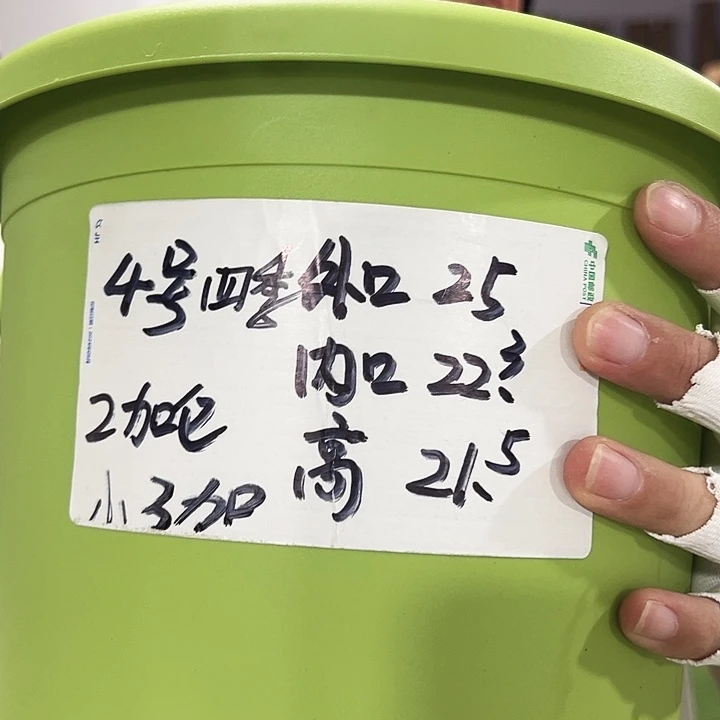 4号四季 外口 25
内口 22.3
2加仑
高 21.5
小3加
中国邮政
CHINA POST